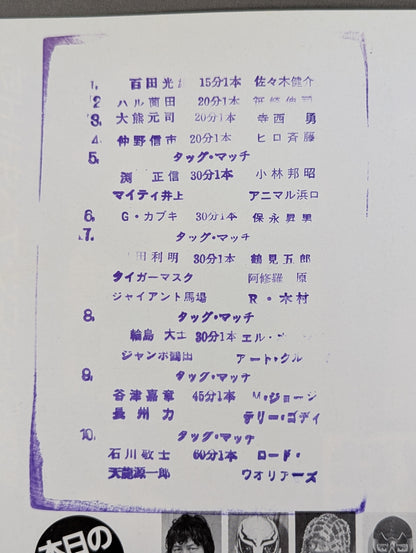 1. 百田光 15分1本 佐々木健介
2 ハル薗田 20分1本 笹崎伸司
3. 大熊元司 20分1本 寺西 勇
4. 仲野信市 20分1本 ヒロ斉藤
5. タッグ・マッチ
渕 正信 30分1本 小林邦昭
マイティ井上 アニマル浜口
6. G・カブキ 30分1本 保永昇男
7. タッグ・マッチ
田利明 30分1本 鶴見五郎
タイガーマスク 阿修羅 原
ジャイアント馬場 R・木村
8. タッグ・マッチ
輪島 大士 30分1本 エル・
ジャンボ鶴田 アート・クル
9. タッグ・マッチ
谷津嘉章 45分1本 M・ジョージ
長州 力 テリー・ゴディ
10. タッグ・マッチ
石川敬士 60分1本 ロード・
天龍源一郎 ウオリアーズ
本日の